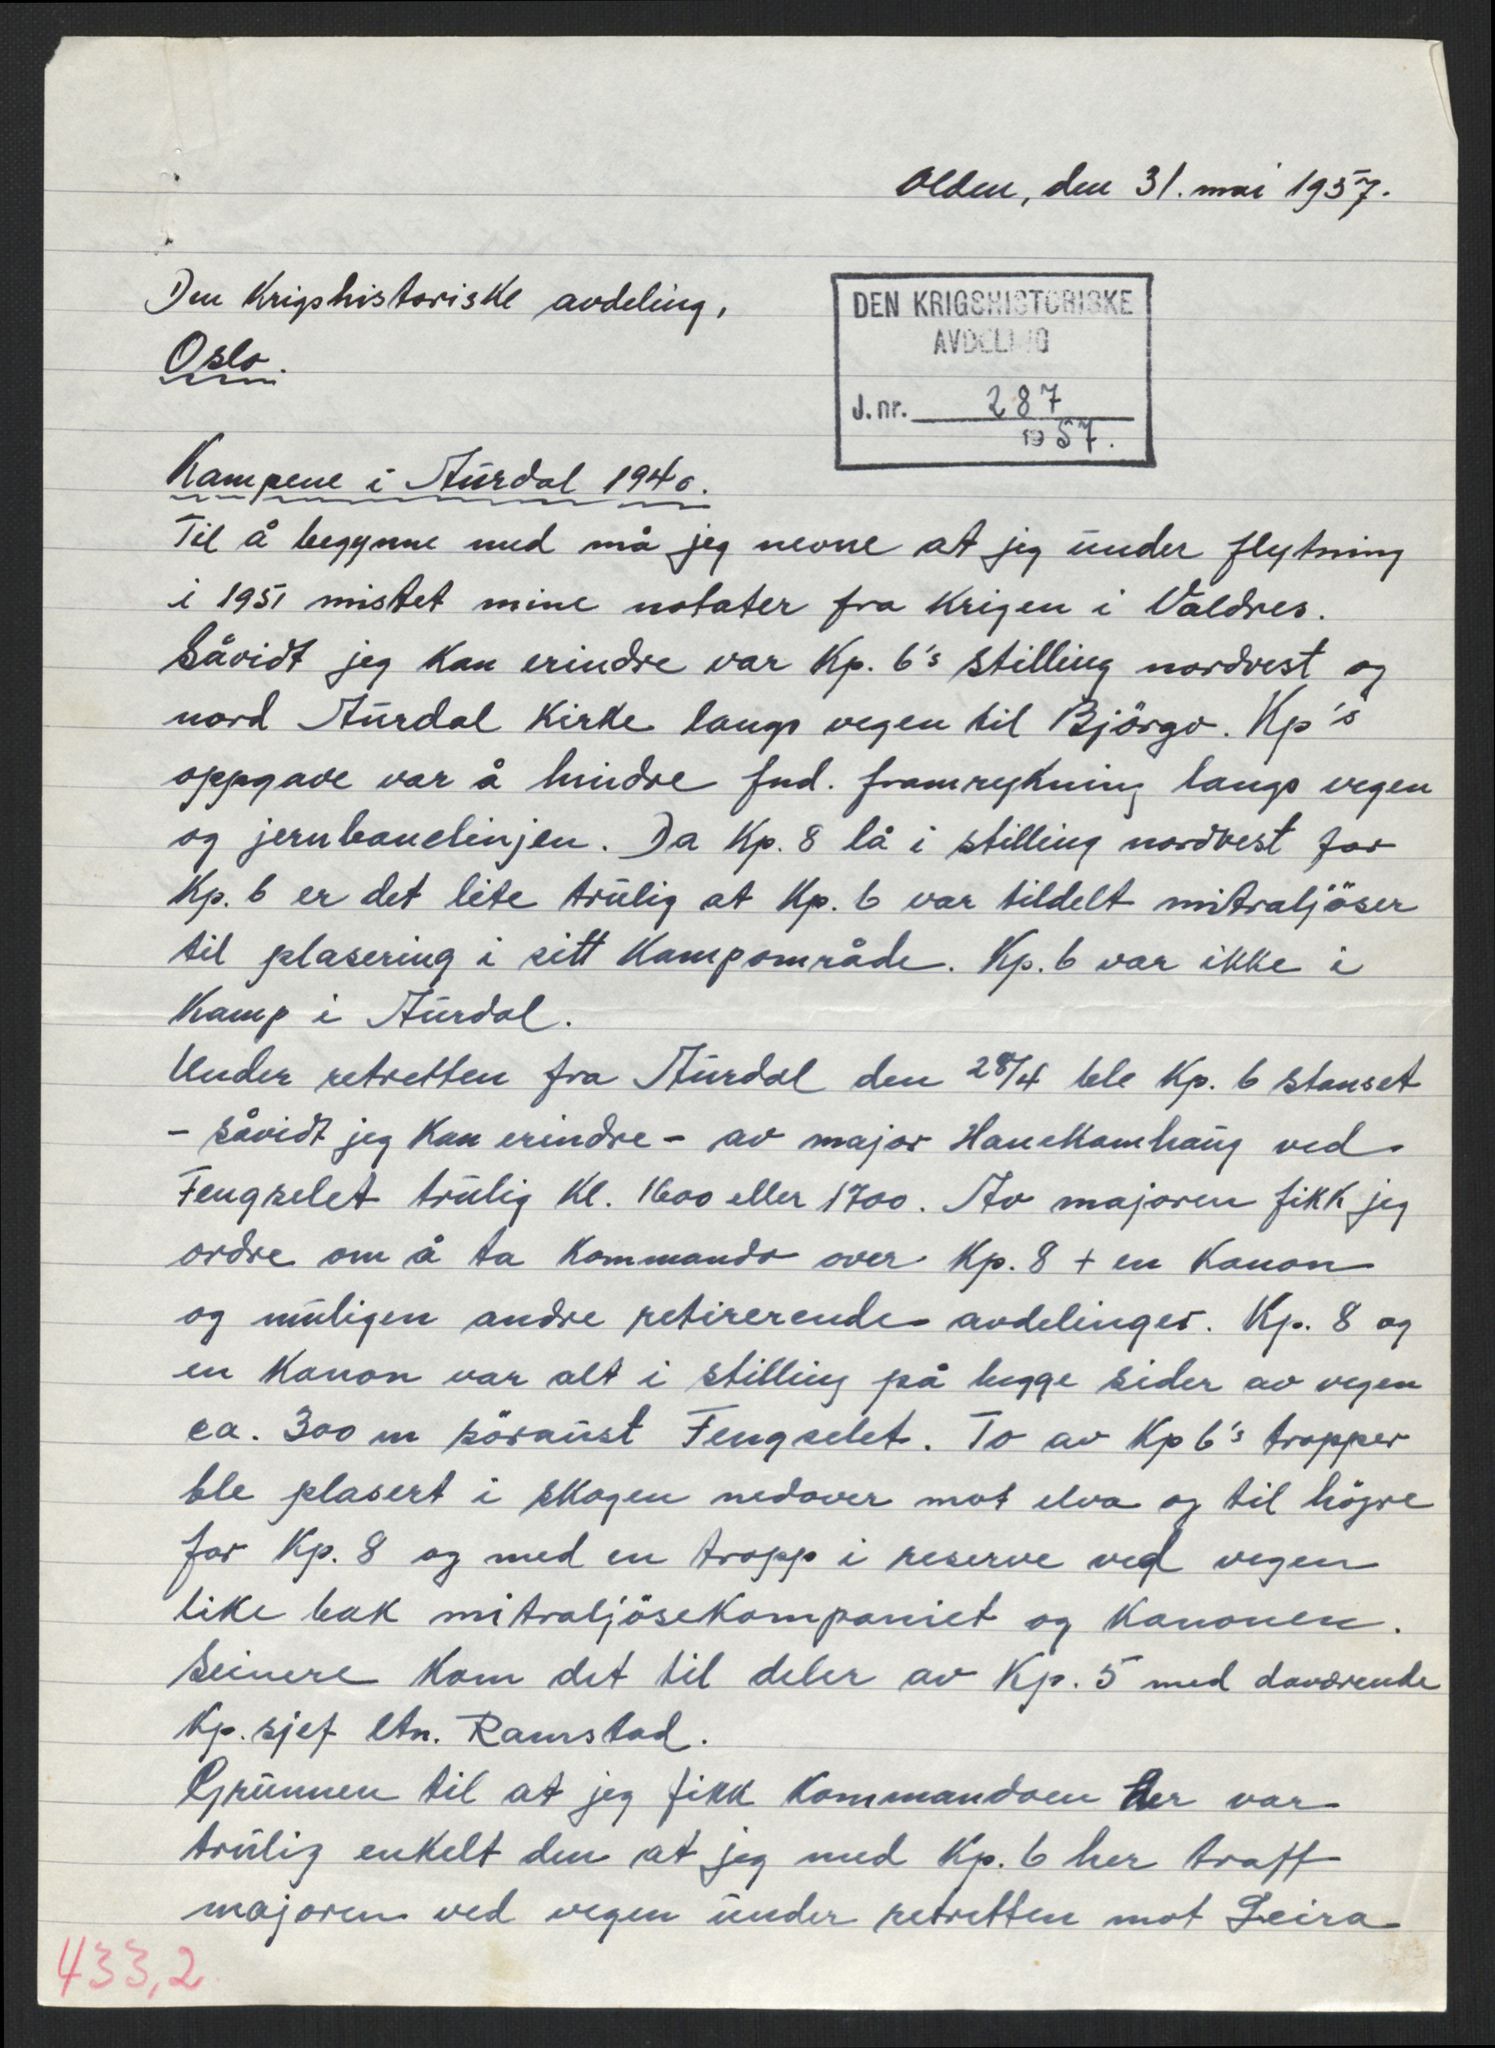 Olden, den 31. mai 1957.
Den Krigshistoriske avdeling,
Oslo.
DEN KRIGSHISTORISKE
AVDELING
J. nr. 287
1957.
Kampene i Aurdal 1940.
Til å begynne med må jeg nevne at jeg under flytning
i 1951 mistet mine notater fra krigen i Valdres.
Såvidt jeg kan erindre var Kp. 6's stilling nordvest og
nord Aurdal kirke langs vegen til Björgo. Kp's
oppgave var å hindre fnd. framrykning langs vegen
og jernbanelinjen. Da Kp. 8 lå i stilling nordvest for
Kp. 6 er det lite trulig at Kp. 6 var tildelt mitraljöser
til plasering i sitt kampområde. Kp. 6 var ikke i
kamp i Aurdal.
Under retretten fra Aurdal den 28/4 ble Kp. 6 stanset
- såvidt jeg kan erindre - av major Hanekamhaug ved
Fengselet trulig kl. 1600 eller 1700. Av majoren fikk jeg
ordre om å ta kommando over Kp. 8 + en kanon
og muligen andre retirerende avdelinger. Kp. 8 og
en kanon var alt i stilling på begge sider av vegen
ca. 300 m söraust Fengselet. To av Kp 6's tropper
ble plasert i skogen nedover mot elva og til högre
for Kp. 8 og med en tropp i reserve ved vegen
like bak mitraljösekompaniet og kanonen.
Seinere kom det til deler av Kp. 5 med daværende
Kp. sjef ltn. Ramstad.
Grunnen til at jeg fikk kommandoen her var
trulig enkelt den at jeg med Kp. 6 her traff
majoren ved vegen under retretten mot Leira
433,2